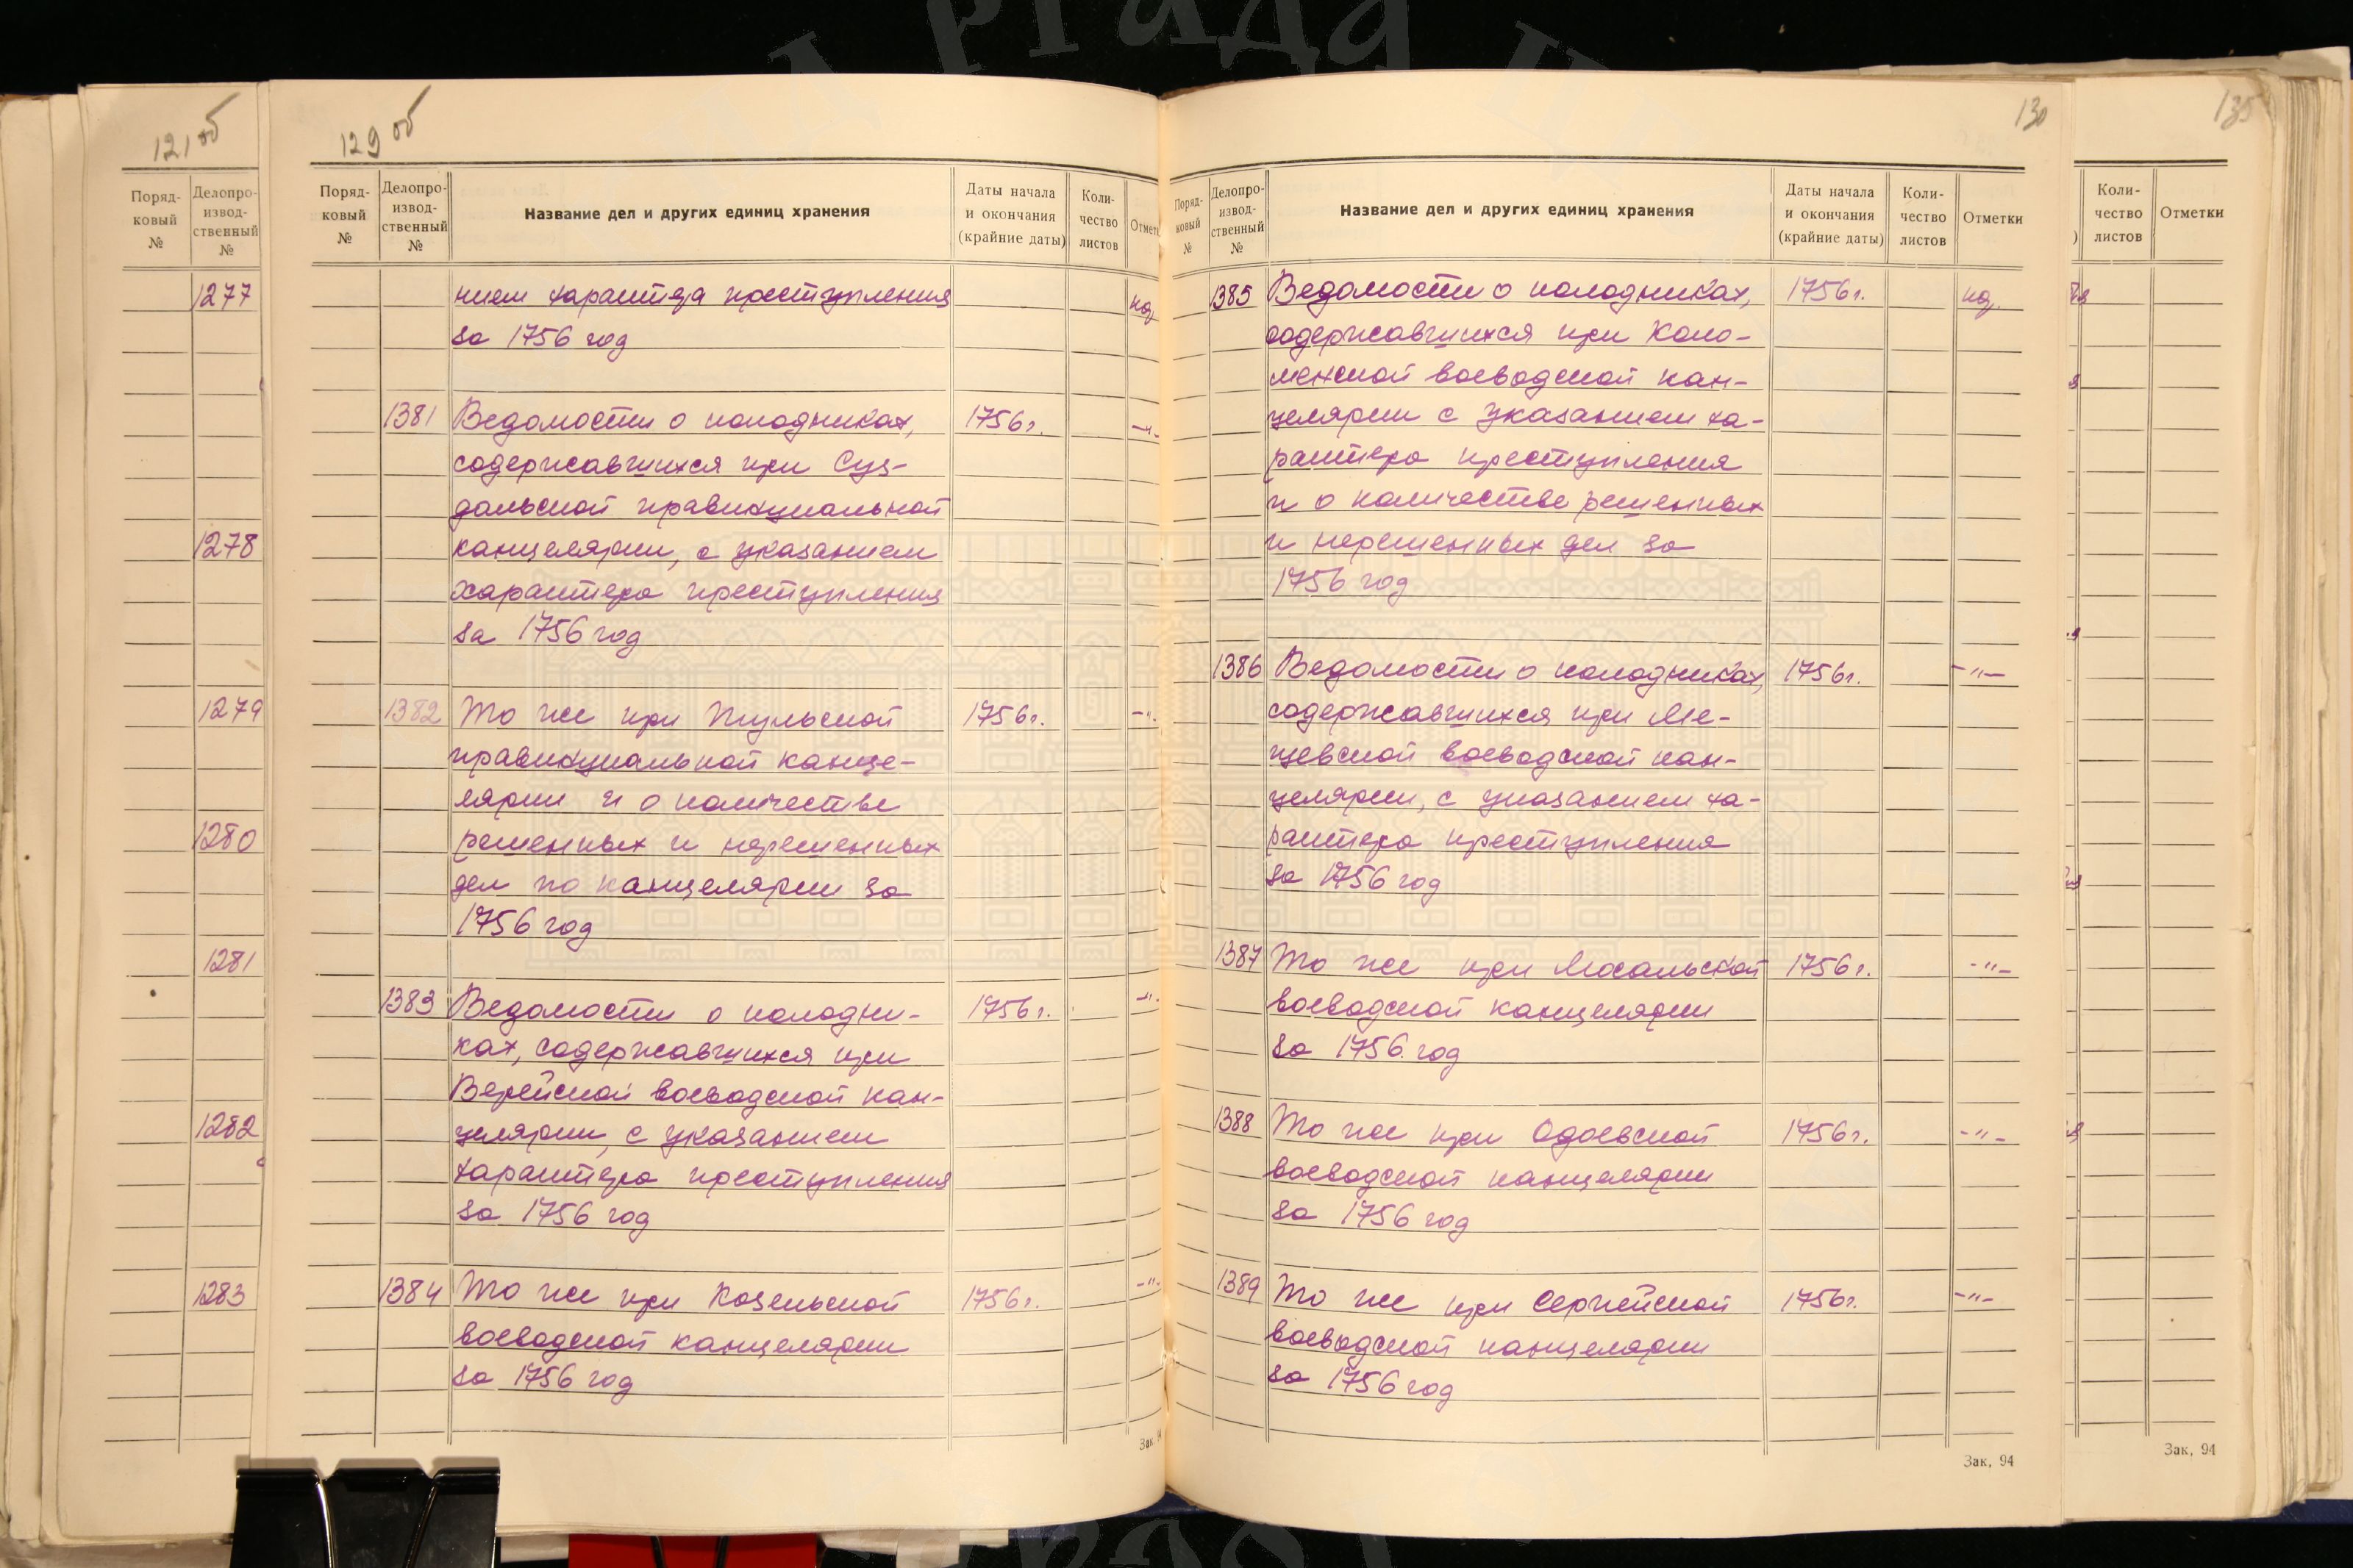 121об
Поряд-
ковый
№
Делопро-
извод-
ственный
№
1277
1278
1279
1280
1281
1282
1283
129 об
Поряд-
ковый
№
Делопро-
извод-
ственный
№
Название дел и других единиц хранения
Даты начала
и окончания
(крайние даты)
Коли-
чество
листов
Отмет
нием характера преступления
за 1756 год
1381 Ведомости о колодниках, 1756 г. -"-
содержавшихся при Суз-
дальской правинциальной
канцелярии, с указанием
характера преступления
за 1756 год
1382 То же при Тульской 1756 г. -"-
правинциальной канце-
лярии и о количестве
решенных и нерешенных
дел по канцелярии за
1756 год
1383 Ведомости о колодни- 1756 г. -"-
ках, содержавшихся при
Верейской воеводской кан-
целярии, с указанием
характера преступления
за 1756 год
1384 То же при Козельской 1756 г. -"-
воеводской канцелярии
за 1756 год
Зак.
130
Поряд-
ковый
№
Делопро-
извод-
ственный
№
Название дел и других единиц хранения
Даты начала
и окончания
(крайние даты)
Коли-
чество
листов
Отметки
1385 Ведомости о колодниках, 1756 г.
содержавшихся при Коло-
менской воеводской кан-
целярии с указанием ха-
рактера преступления
и о количестве решенных
и нерешенных дел за
1756 год
1386 Ведомости о колодниках, 1756 г. -"-
содержавшихся при Ме-
щевской воеводской кан-
целярии, с указанием ха-
рактера преступления
за 1756 год
1387 То же при Мосальской 1756 г. -"-
воеводской канцелярии
за 1756 год
1388 То же при Одоевской 1756 г. -"-
воеводской канцелярии
за 1756 год
1389 То же при Серпейской 1756 г. -"-
воеводской канцелярии
за 1756 год
Зак, 94
135
Коли-
чество
листов
Отметки
Зак, 94